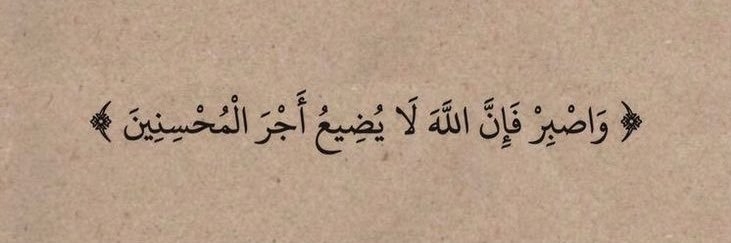 ﴿ وَاصْبِرْ فَإِنَّ اللَّهَ لَا يُضِيعُ أَجْرَ الْمُحْسِنِينَ ﴾